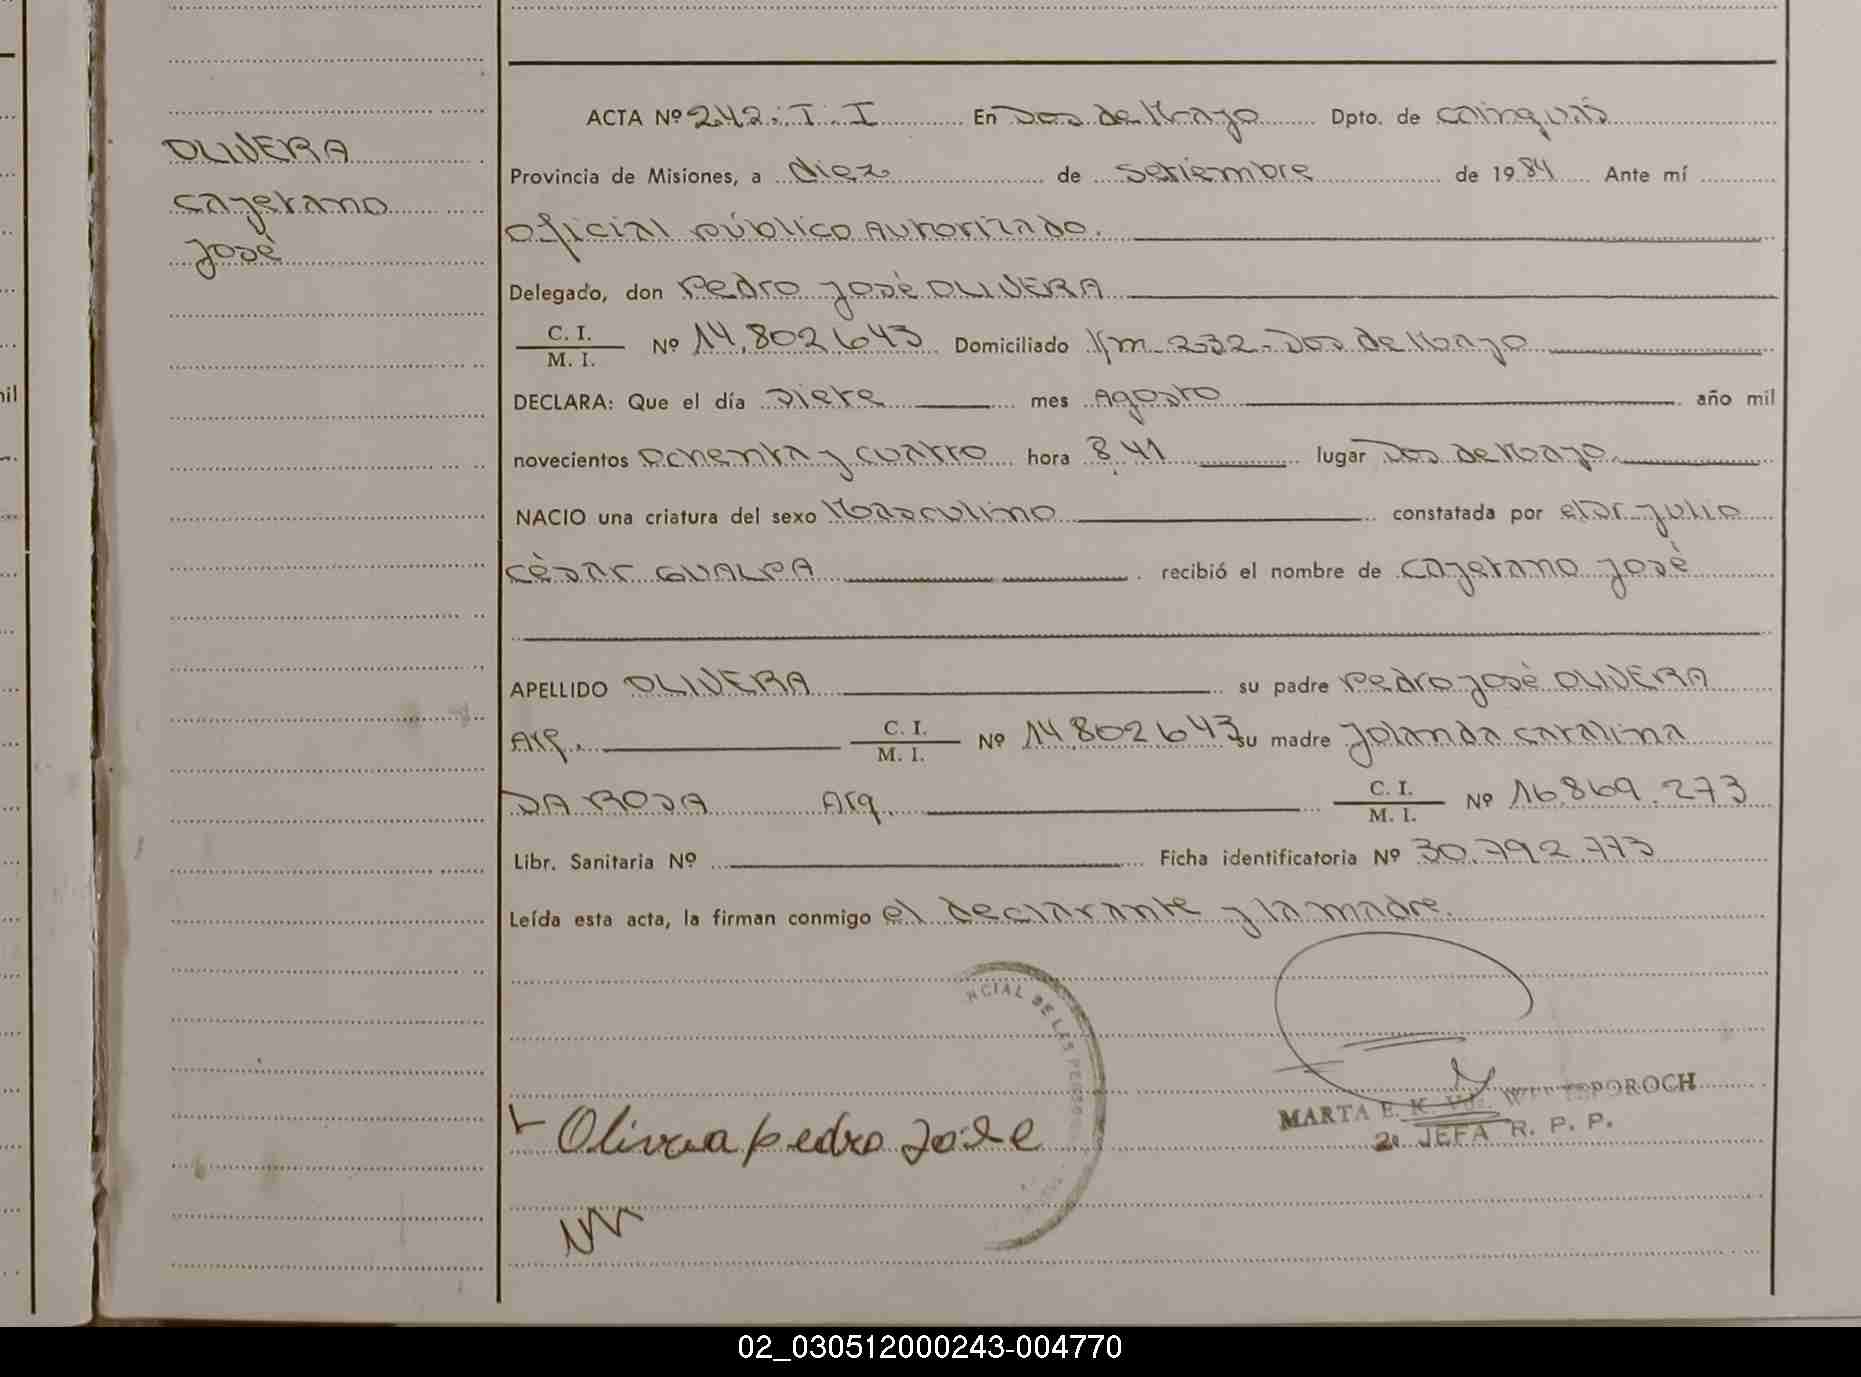 OLIVERA
Cayetano
José
ACTA Nº 242. T. I En Dos de Mayo Dpto. de Cainguás
Provincia de Misiones, a diez de Setiembre de 1984 Ante mí
Oficial público Autorizado.
Delegado, don Pedro José OLIVERA
C. I.
M. I. Nº 14.802643 Domiciliado Km 232-Dos de Mayo
DECLARA: Que el día Siete mes Agosto año mil
novecientos Ochenta y cuatro hora 8,41 lugar Dos de Mayo
NACIO una criatura del sexo Masculino constatada por el Dr Julio
Cèsar GUALPA recibió el nombre de Cayetano José
APELLIDO OLIVERA su padre Pedro José OLIVERA
Arg. C. I.
M. I. Nº 14.802643 su madre Yolanda Catalina
DA ROSA Arg. C. I.
M. I. Nº 16.869.273
Libr. Sanitaria Nº Ficha identificatoria Nº 30.792.773
Leída esta acta, la firman conmigo el declarante y la madre.
NCIAL DE LAS PERSO
Olivera pedro José
MARTA E. K.
2a JEFA R. P. P.
mil
02_030512000243-004770